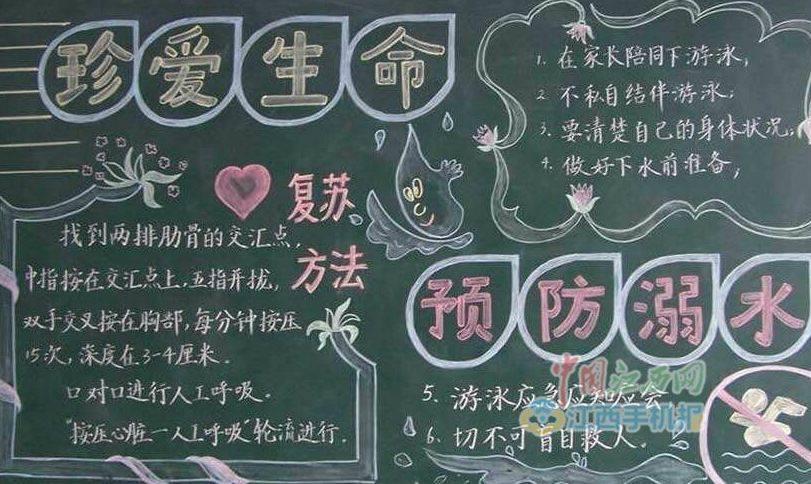 珍爱生命
1. 在家长陪同下游泳;
2. 不私自结伴游泳;
3. 要清楚自己的身体状况;
4. 做好下水前准备,
复苏
方法
找到两排肋骨的交汇点,
中指按在交汇点上,五指并拢,
双手交叉按在胸部,每分钟按压
15次,深度在3-4厘米。
口对口进行人工呼吸。
"按压心脏一人工呼吸"轮流进行.
预防溺水
5. 游泳应急应知应会
6. 切不可盲目救人。
中国江西网
江西手机报